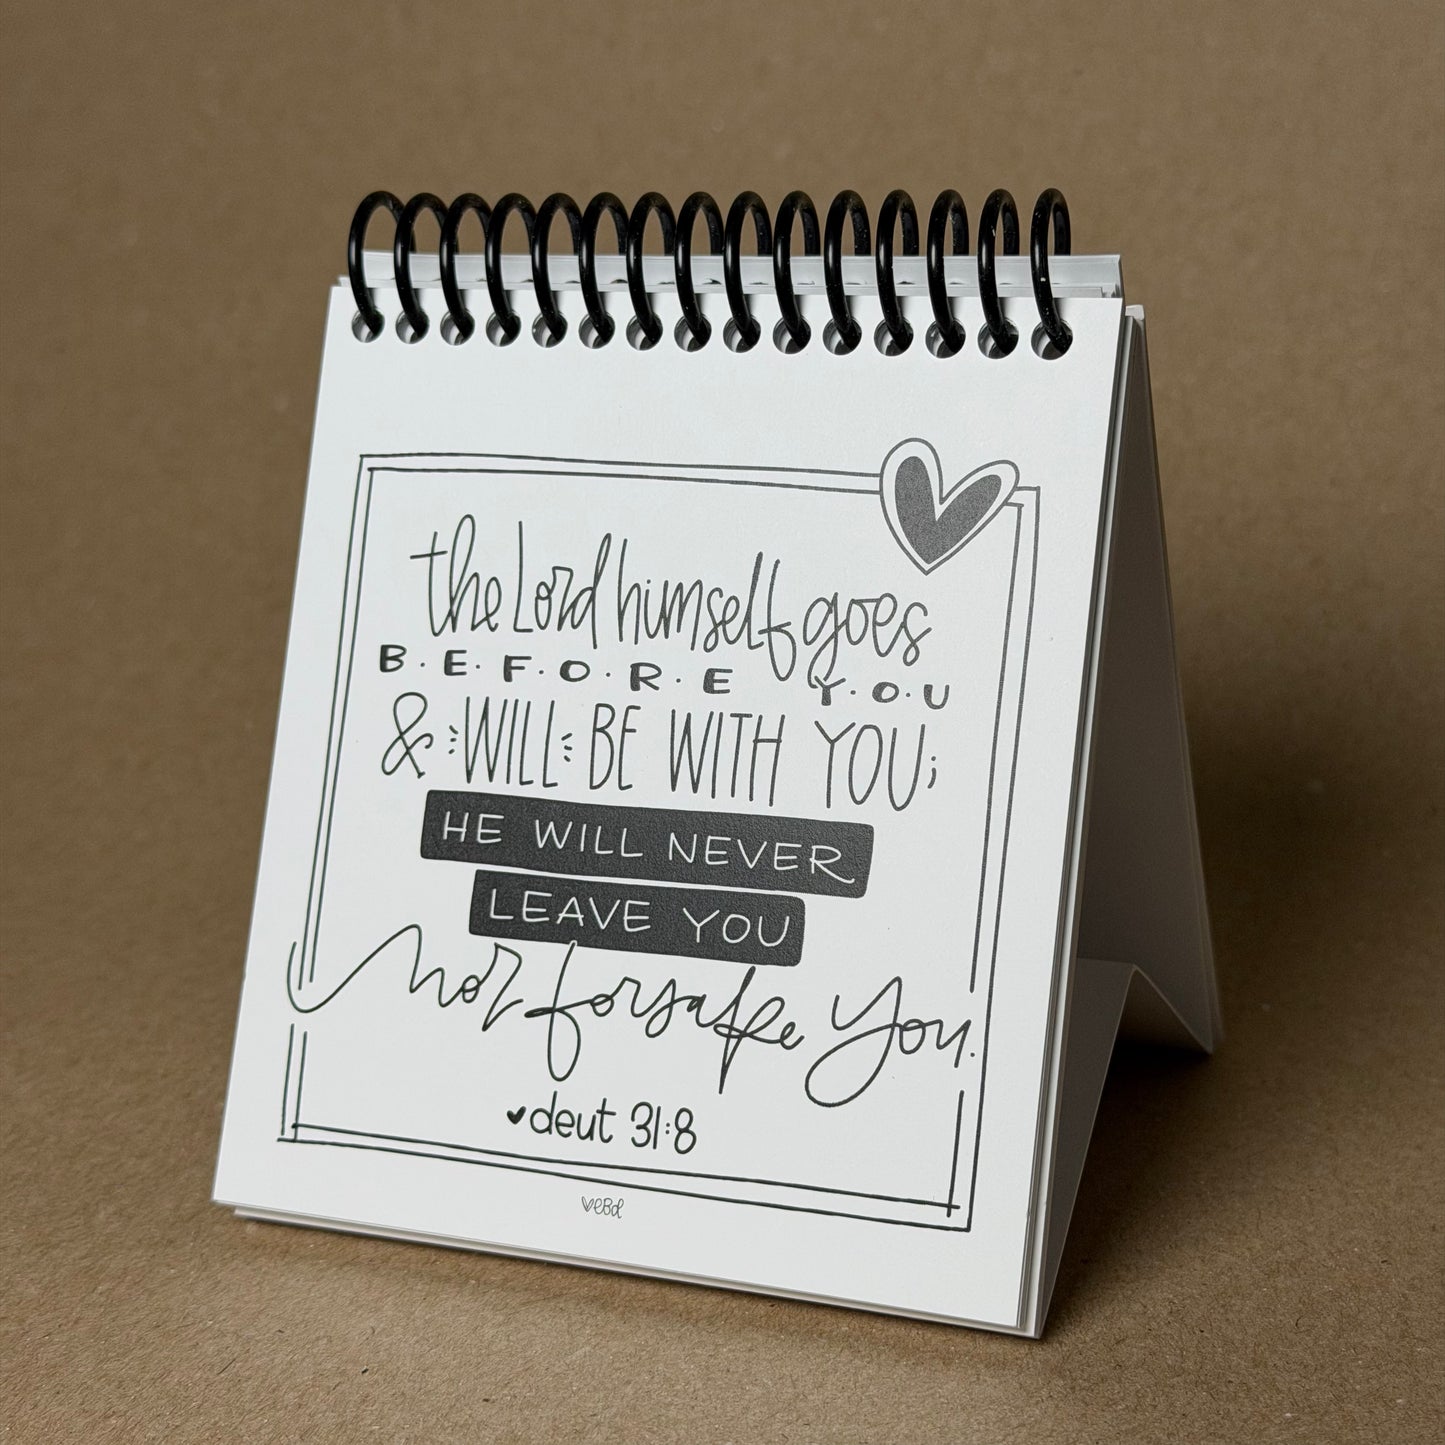 the Lord himself goes
B·E·F·O·R·E Y·O·U
& WILL BE WITH YOU;
HE WILL NEVER
LEAVE YOU
nor forsake you.
deut 31:8
eBd